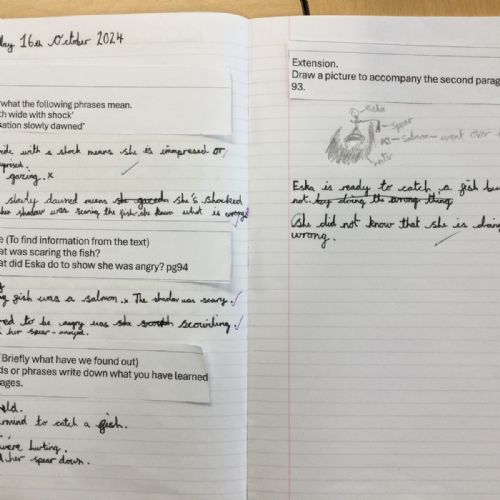 day 16th October 2024
what the following phrases mean.
th wide with shock'
sation slowly dawned'
ide with a shock means she is impressed or
rprised.
gazing. x
slowly dawned means she's shocked
her shadow was scaring the fish she know what is wrong
e (To find information from the text)
at was scaring the fish?
at did Eska do to show she was angry? pg94
fish was a salmon. x The shadow was scary.
red to be angry was she scowling
her spear - annoyed.
Briefly what have we found out)
ds or phrases write down what you have learned
ages.
ld.
around to catch a fish.
were hurting.
her spear down.
Extension.
Draw a picture to accompany the second parag
93.
eska
spear
salmon - went over
Eska is ready to catch a fish bu
not by doing the wrong thing
She did not know that she is doing
wrong.